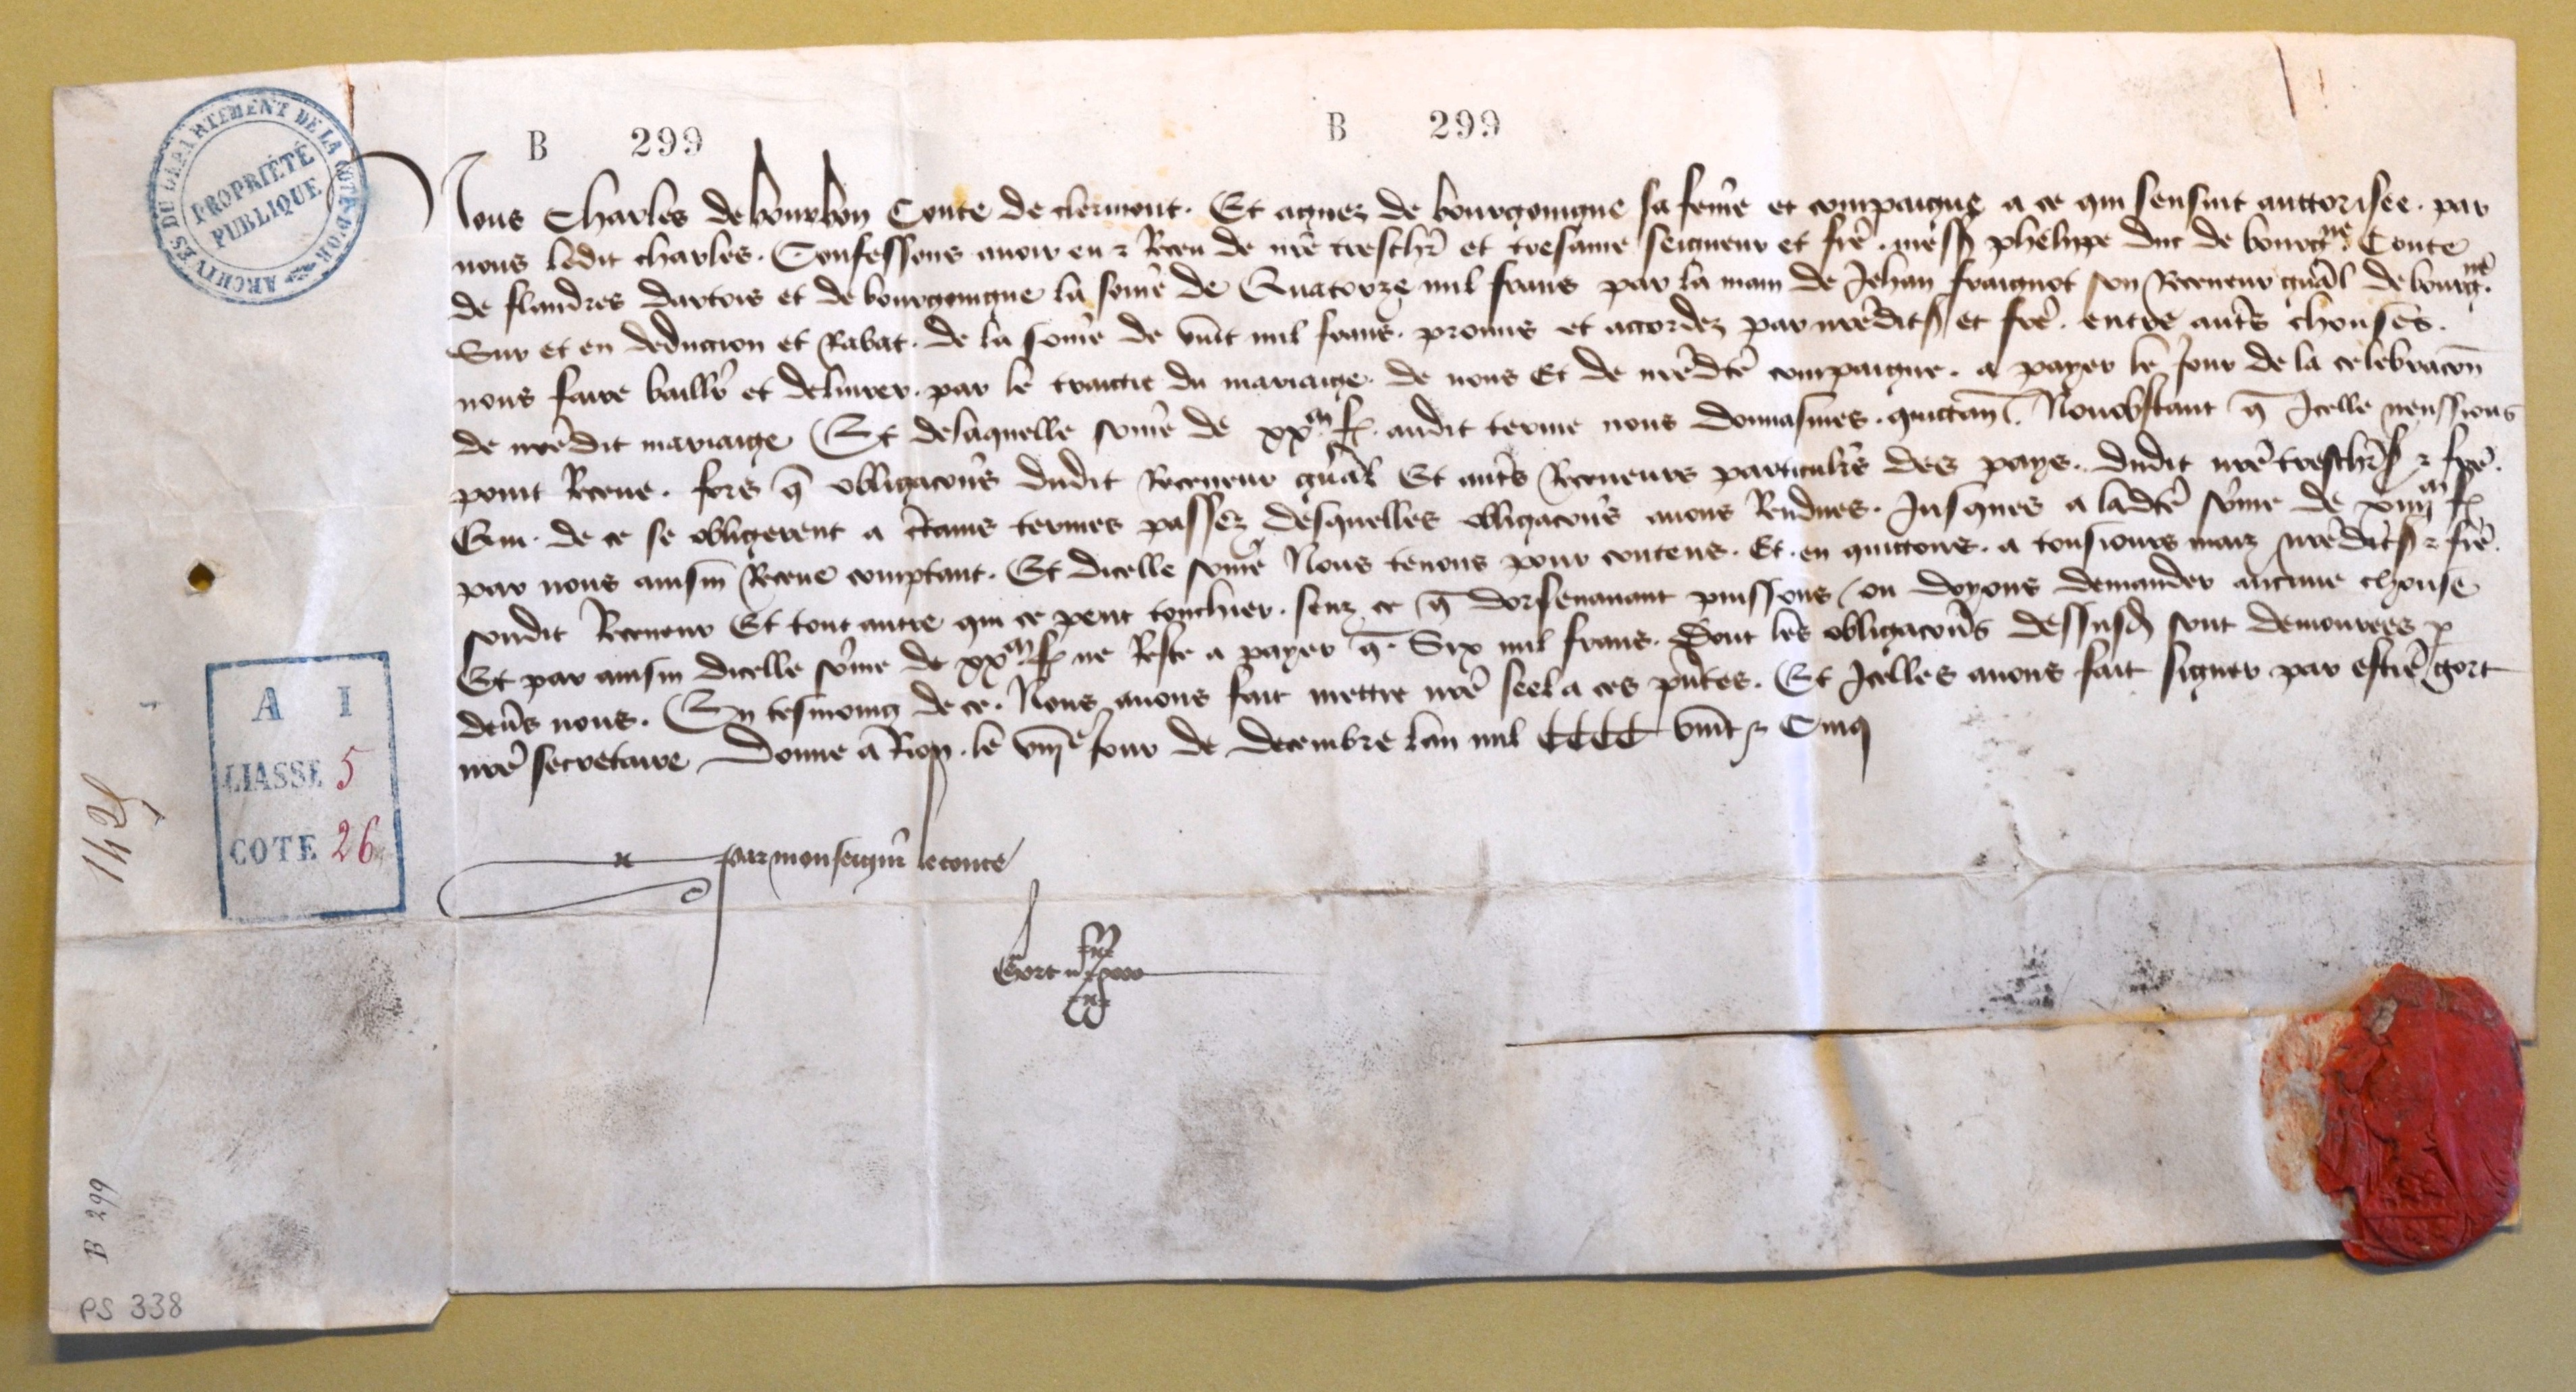 ARCHIVES DU DÉPARTEMENT DE LA CÔTE-D'OR
PROPRIÉTÉ
PUBLIQUE
B 299
B 299
Nous Charles de bourbon Conte de clermont. Et agnez de bourgongne sa feme et compaigne a ce qui sensuit auttorisee. par
nous ledit charles. Confessons auoir eu & Receu de nre treschr et tresame seigneur et fre. mess phelippe duc de bourgne Conte
de flandres dartois et de bourgongne la some de Quatorze mil frans par la main de Jehan fraignot son Receueur gnal de bourgne.
Sur et en deduccion et Rabat. de la some de vint mil frans. promis et accordez par nredit s et fre. entre auts chouses.
nous faire baillr et deliurer. par le traictie du mariaige. de nous Et de nredte compaigne. a payer le jour de la celebracon
de nredit mariaige Et de laquelle some de xxm f. audit terme nous donnasmes. quictan. Nonobstant q Jcelle neussions
point Receue. fors q obligacons dudit Receueur gnal Et auts Receueurs particulrs des pays. dudit nre treschr s & fre.
Qui. de ce se obligerent a Ctains termes passez desquelles obligacons auons Rendues. Jusques a ladte some de xiiijm f
par nous ainsin Receue comptant. Et dicelle some Nous tenons pour contens. Et. en quictons. a tousiours maiz nredit s & fre.
sondit Receueur Et tout autre qui ce peut touchier. senz ce q dorsenauant puissons / ou doyons demander aucune chouse
Et par ainsin dicelle some de xxm f ne Reste a payer q. Six mil frans. Dont les obligacons dessusd sont demourees p
deus nous. En tesmoing de ce. Nous auons fait mettre nre seel a ces pntes. Et Jcelles auons fait signer par estie gort
nre secretaire Donne a Rion. le viije jour de decembre lan mil CCCC vint & Cinq
par monseignr le conte
Gort
A I
LIASSE 5
COTE 26
B 299
PS 338